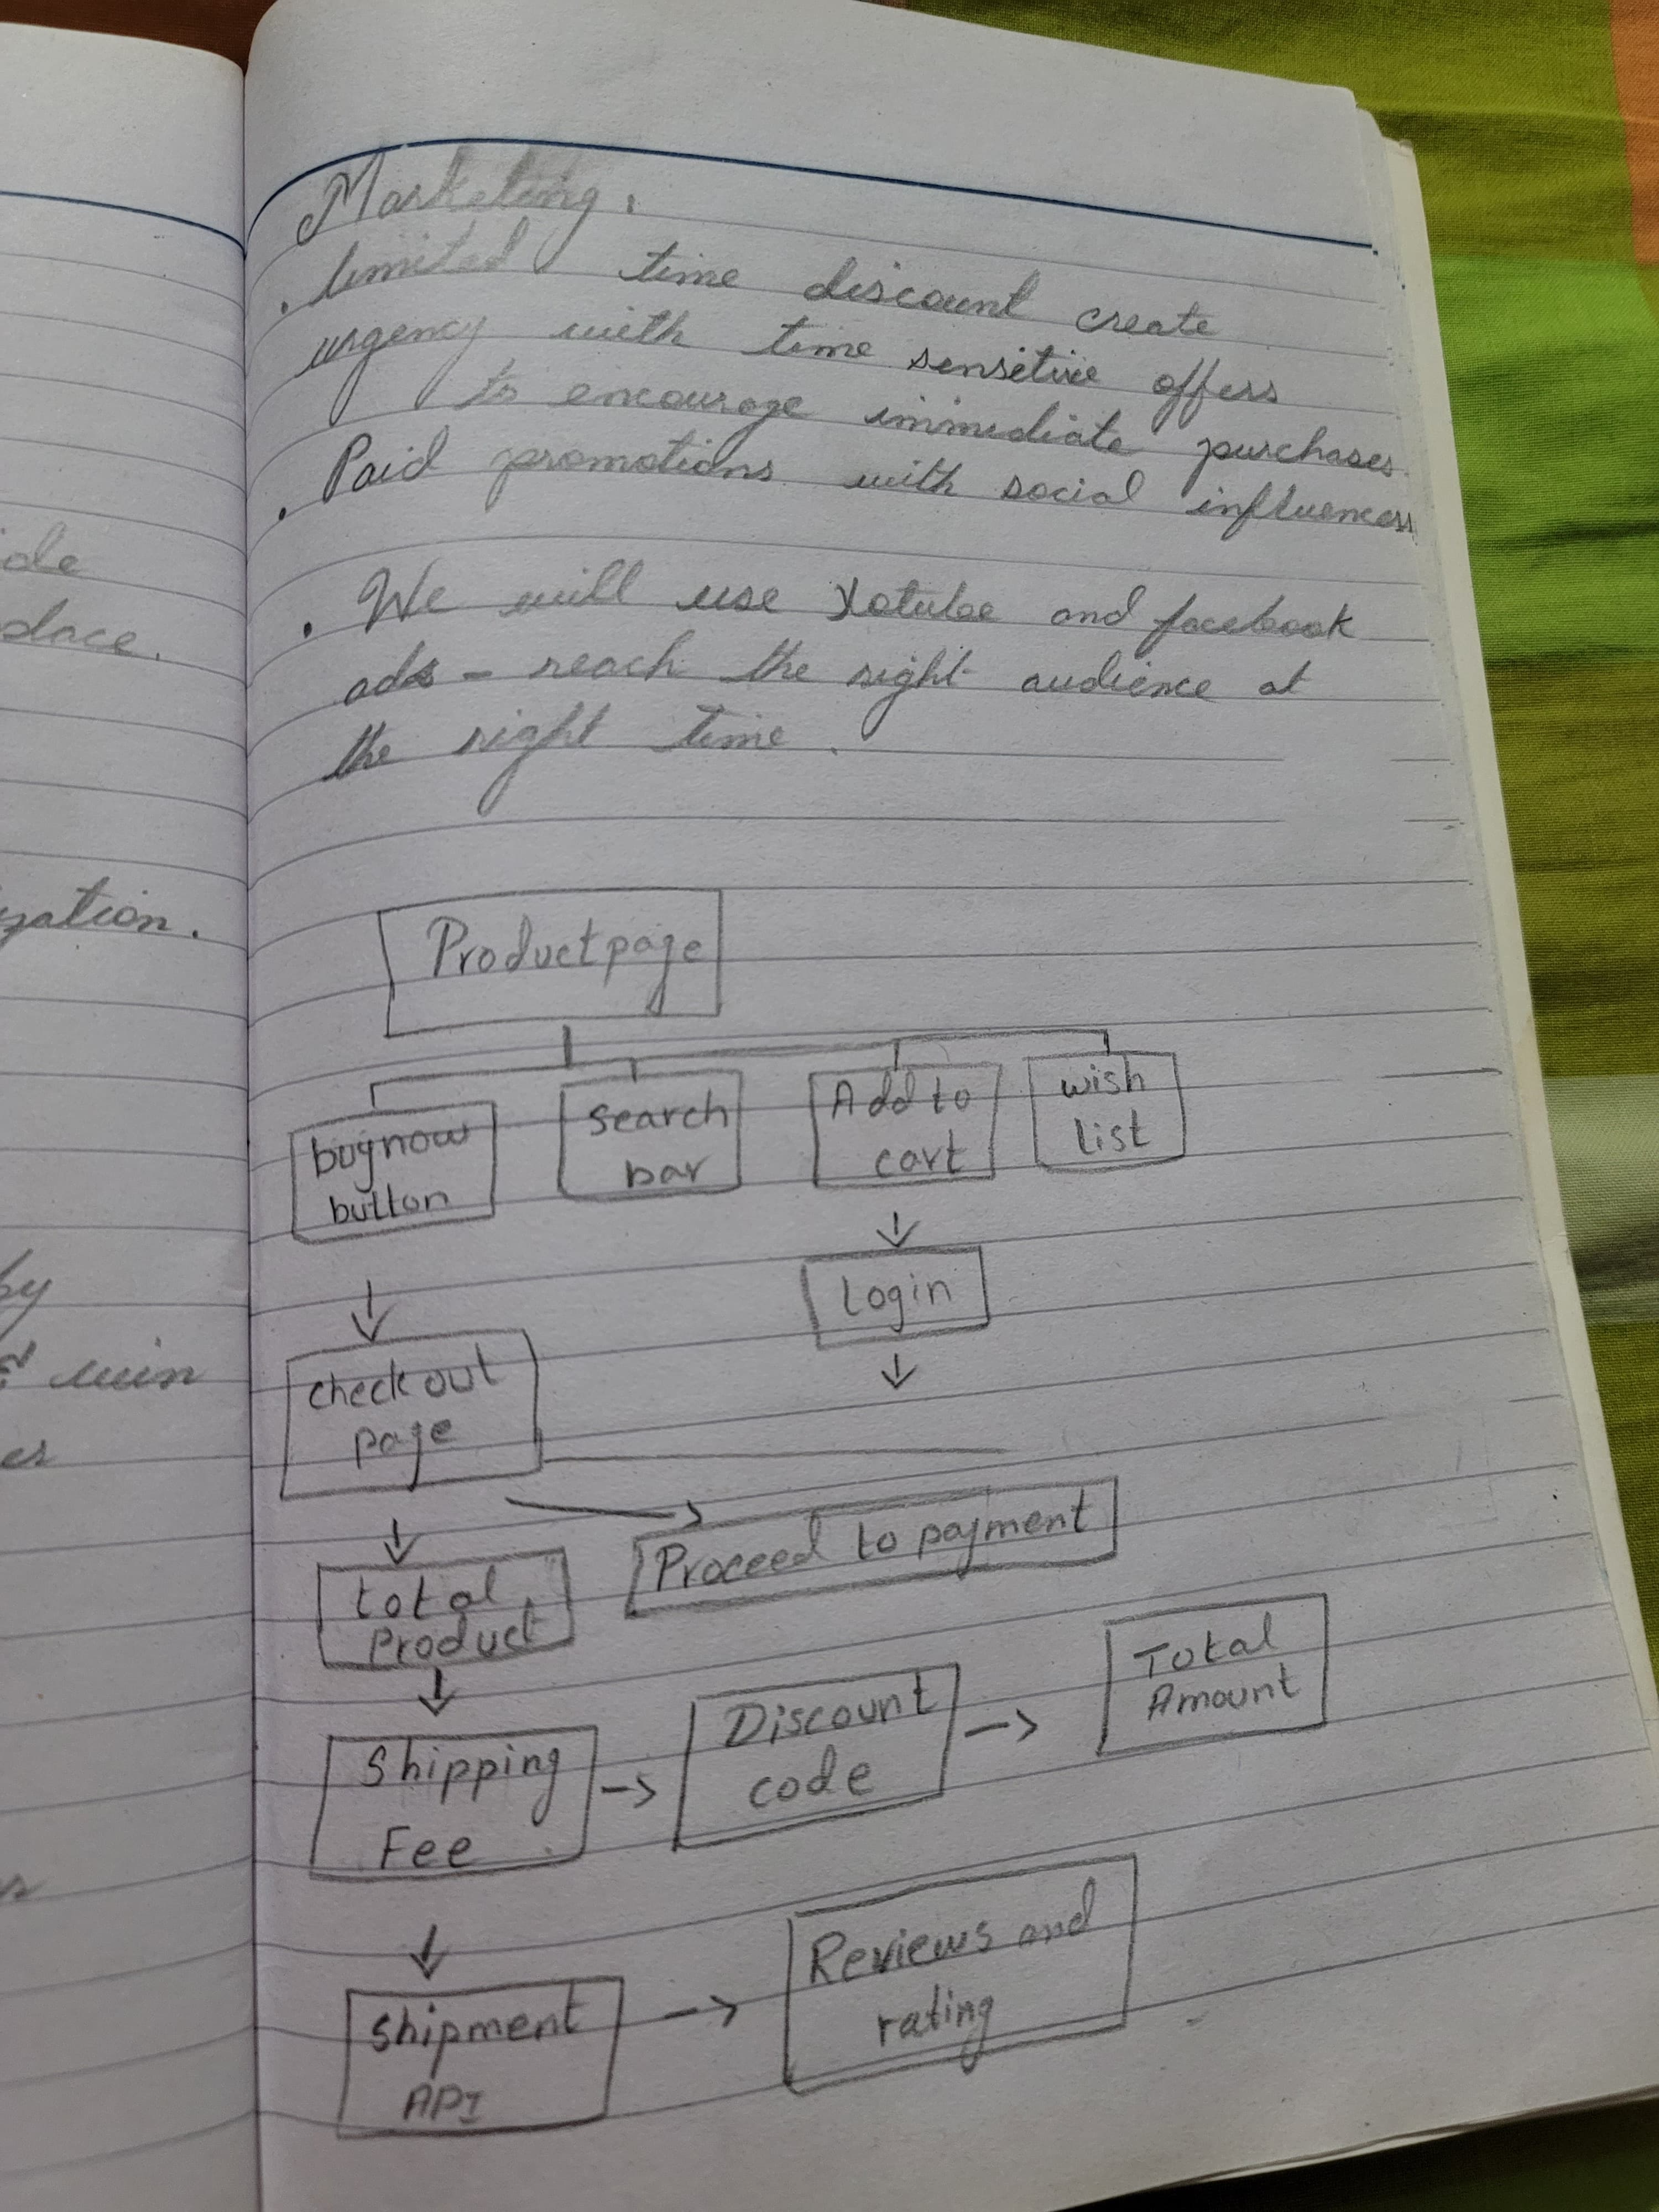 ide
place.
zation.
by
win
er
Marketing.
. limited time discount create
urgency with time sensitive offers
to encourage immediate purchases.
. Paid promotions with social influencers
. We will use Yotube and facebook
ads - reach the right audience at
the right time.
Product page
buynow
button
search
bar
Add to
cart
wish
list
Login
check out
page
Proceed to payment
total
Product
Shipping
Fee
Discount
code
Total
Amount
Shipment
API
Reviews and
rating